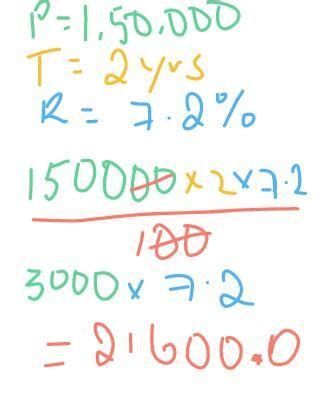 P = 1,50,000
T = 2 yrs
R = 7.2%
150000 x 2 x 7.2
100
3000 x 7.2
= 21600.0